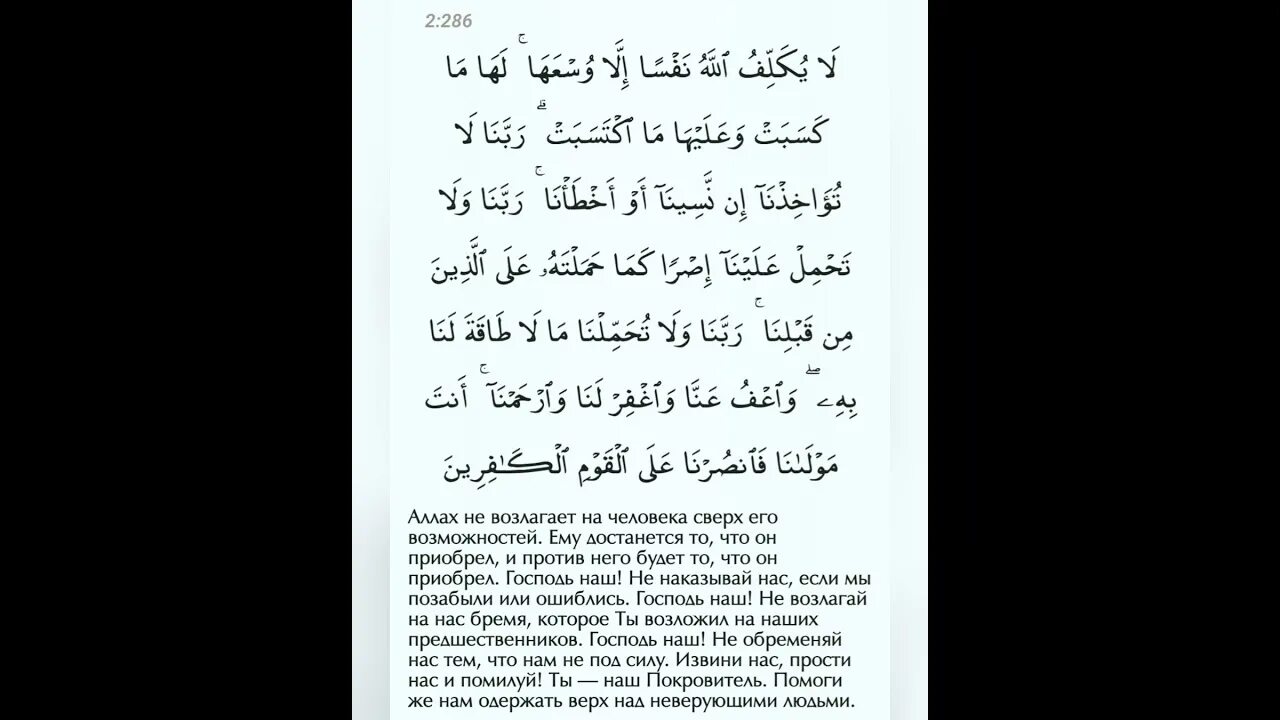 2:286
لَا يُكَلِّفُ ٱللَّهُ نَفْسًا إِلَّا وُسْعَهَا ۚ لَهَا مَا
كَسَبَتْ وَعَلَيْهَا مَا ٱكْتَسَبَتْ ۗ رَبَّنَا لَا
تُؤَاخِذْنَآ إِن نَّسِينَآ أَوْ أَخْطَأْنَا ۚ رَبَّنَا وَلَا
تَحْمِلْ عَلَيْنَآ إِصْرًا كَمَا حَمَلْتَهُۥ عَلَى ٱلَّذِينَ
مِن قَبْلِنَا ۚ رَبَّنَا وَلَا تُحَمِّلْنَا مَا لَا طَاقَةَ لَنَا
بِهِۦ ۖ وَٱعْفُ عَنَّا وَٱغْفِرْ لَنَا وَٱرْحَمْنَآ ۚ أَنتَ
مَوْلَىٰنَا فَٱنصُرْنَا عَلَى ٱلْقَوْمِ ٱلْكَـٰفِرِينَ
Аллах не возлагает на человека сверх его
возможностей. Ему достанется то, что он
приобрел, и против него будет то, что он
приобрел. Господь наш! Не наказывай нас, если мы
позабыли или ошиблись. Господь наш! Не возлагай
на нас бремя, которое Ты возложил на наших
предшественников. Господь наш! Не обременяй
нас тем, что нам не под силу. Извини нас, прости
нас и помилуй! Ты — наш Покровитель. Помоги
же нам одержать верх над неверующими людьми.